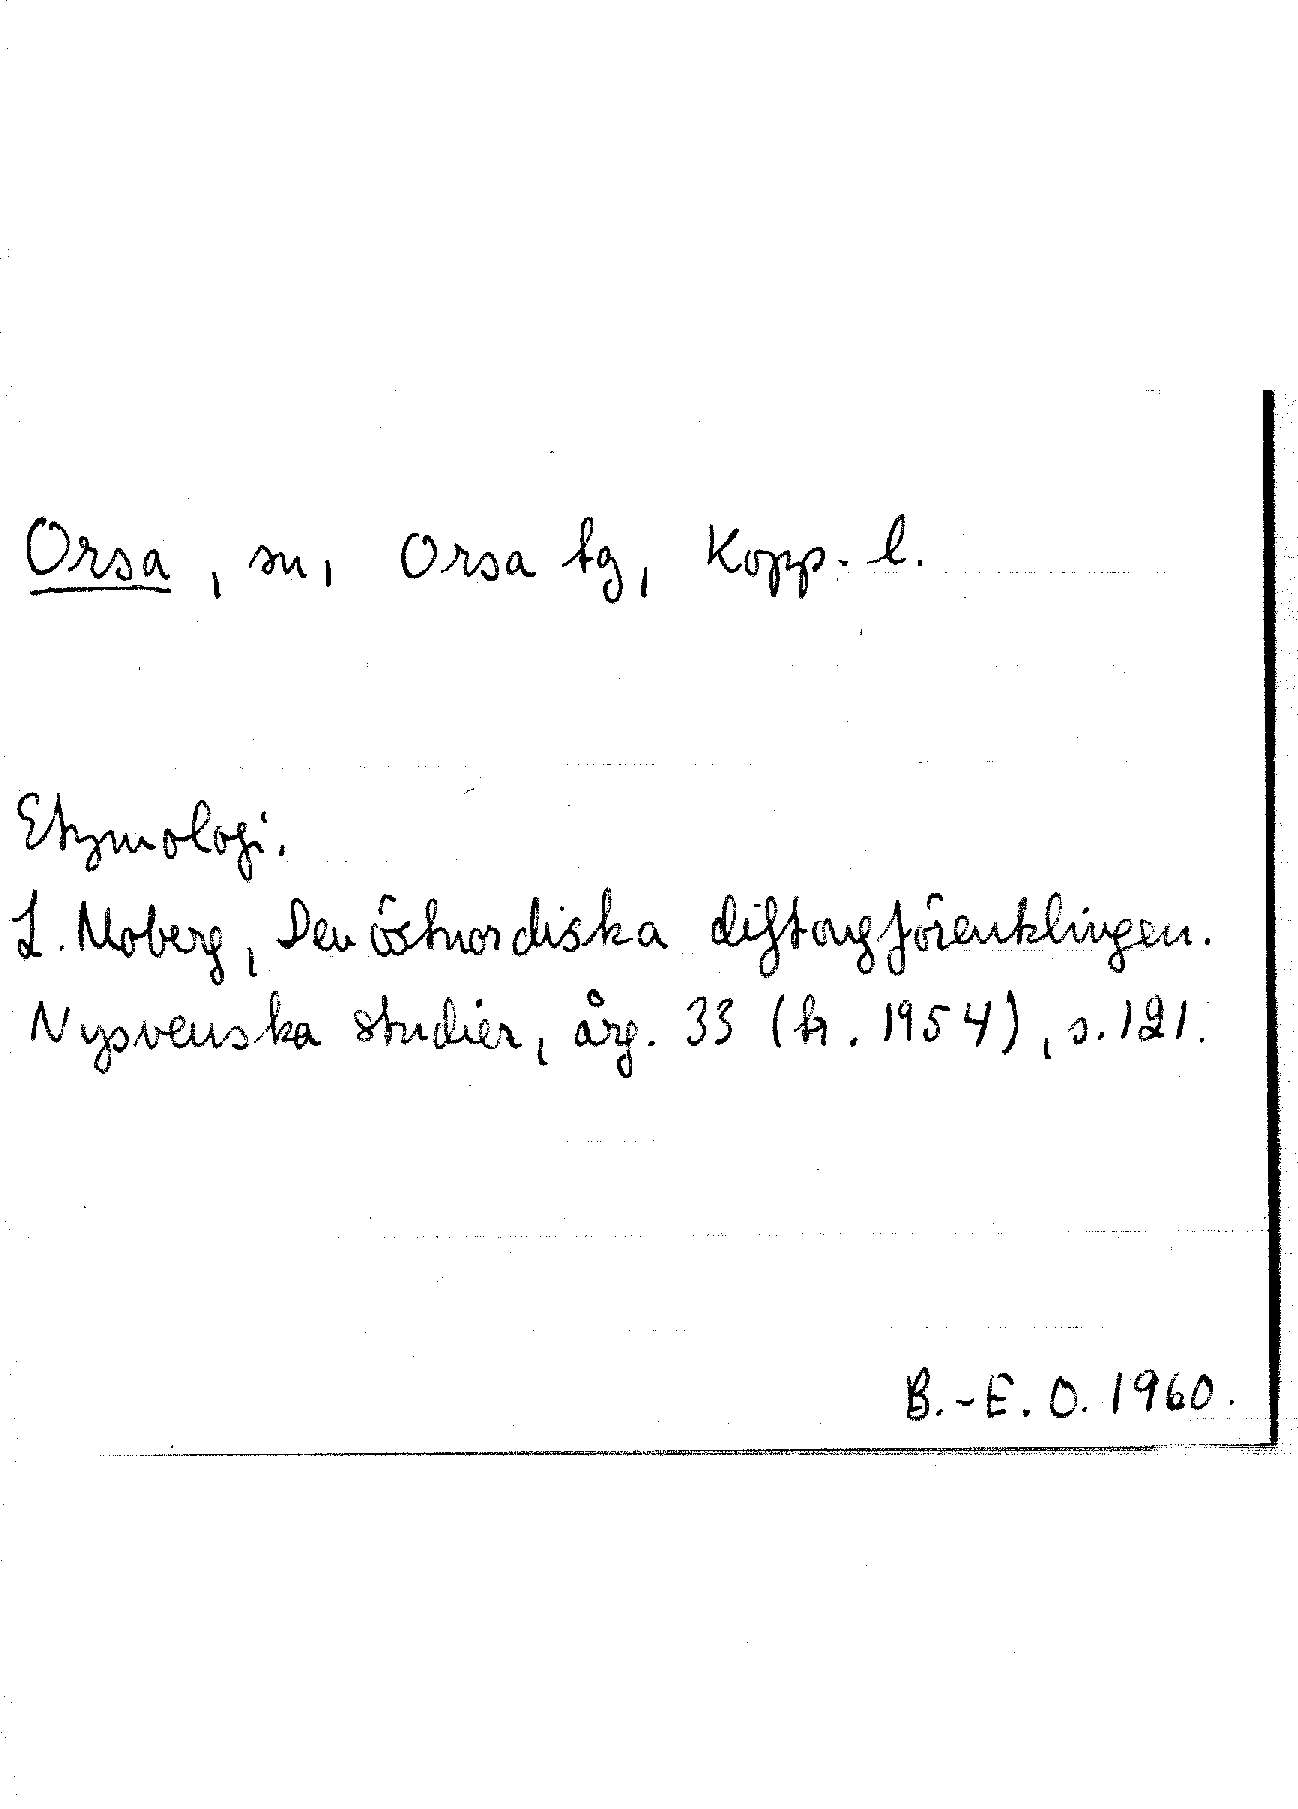 Orsa, sn, Orsa tg, Kopp. l.
Etymologi.
L. Moberg, Den östnordiska diftongförenklingen.
Nysvenska studier, årg. 33 (tr. 1954), s. 121.
B.-E. O. 1960.